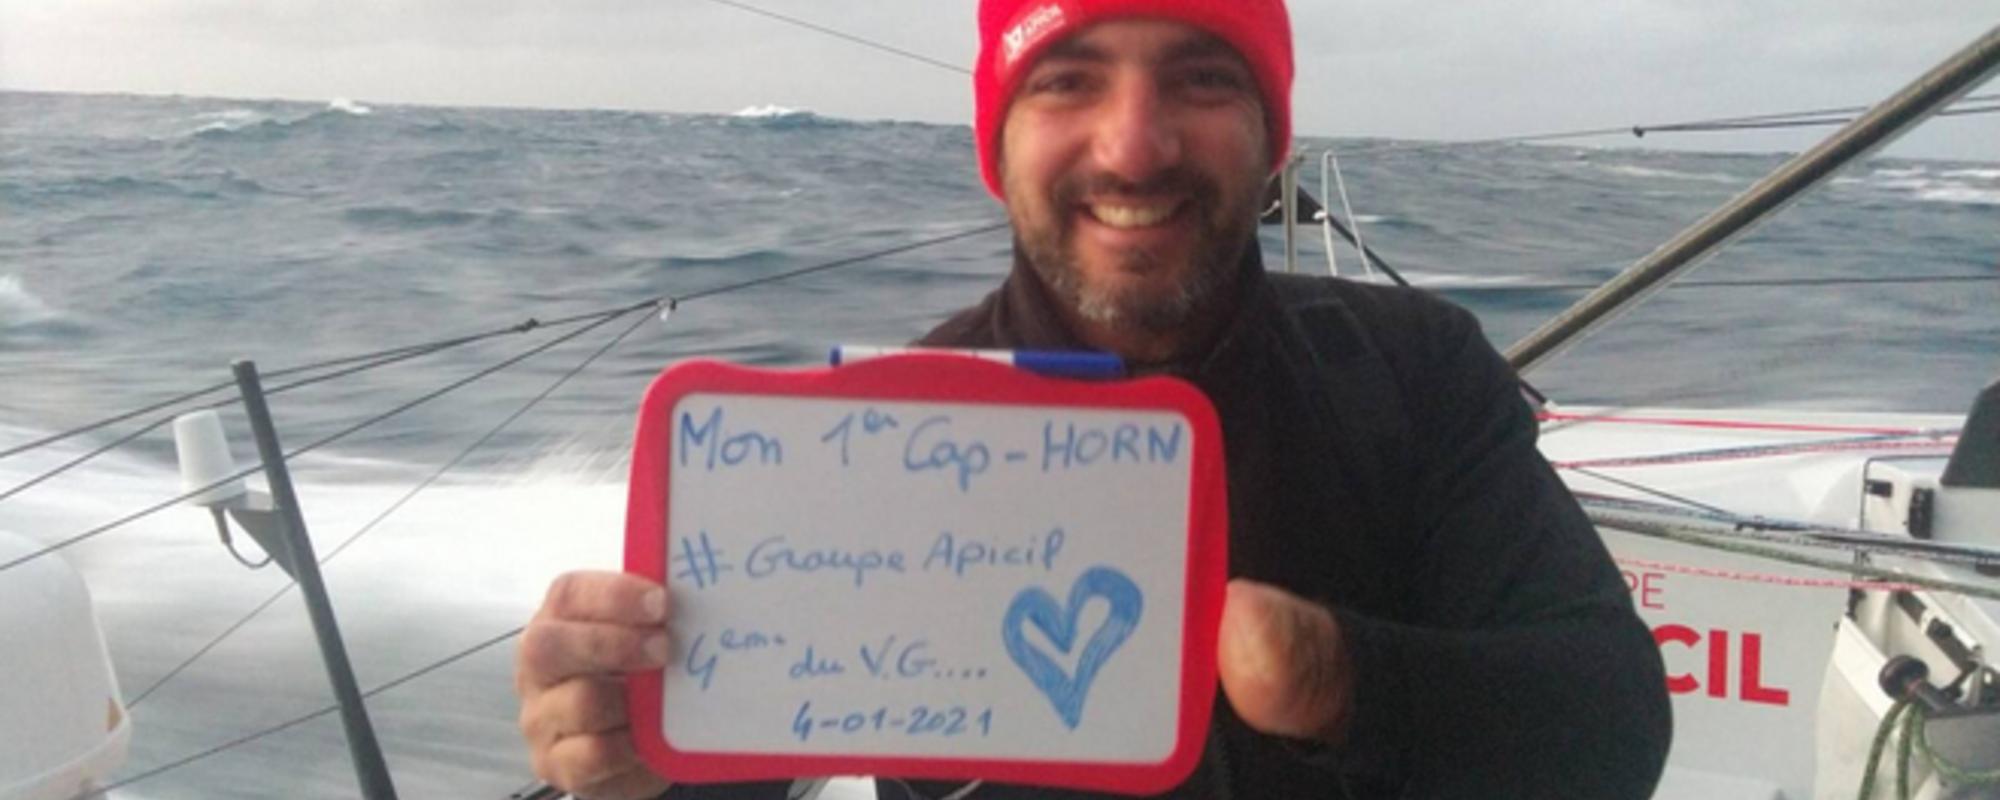 APICIL
Mon 1er Cap-HORN
# Groupe Apicil
4eme du V.G....
4-01-2021
PE
CIL